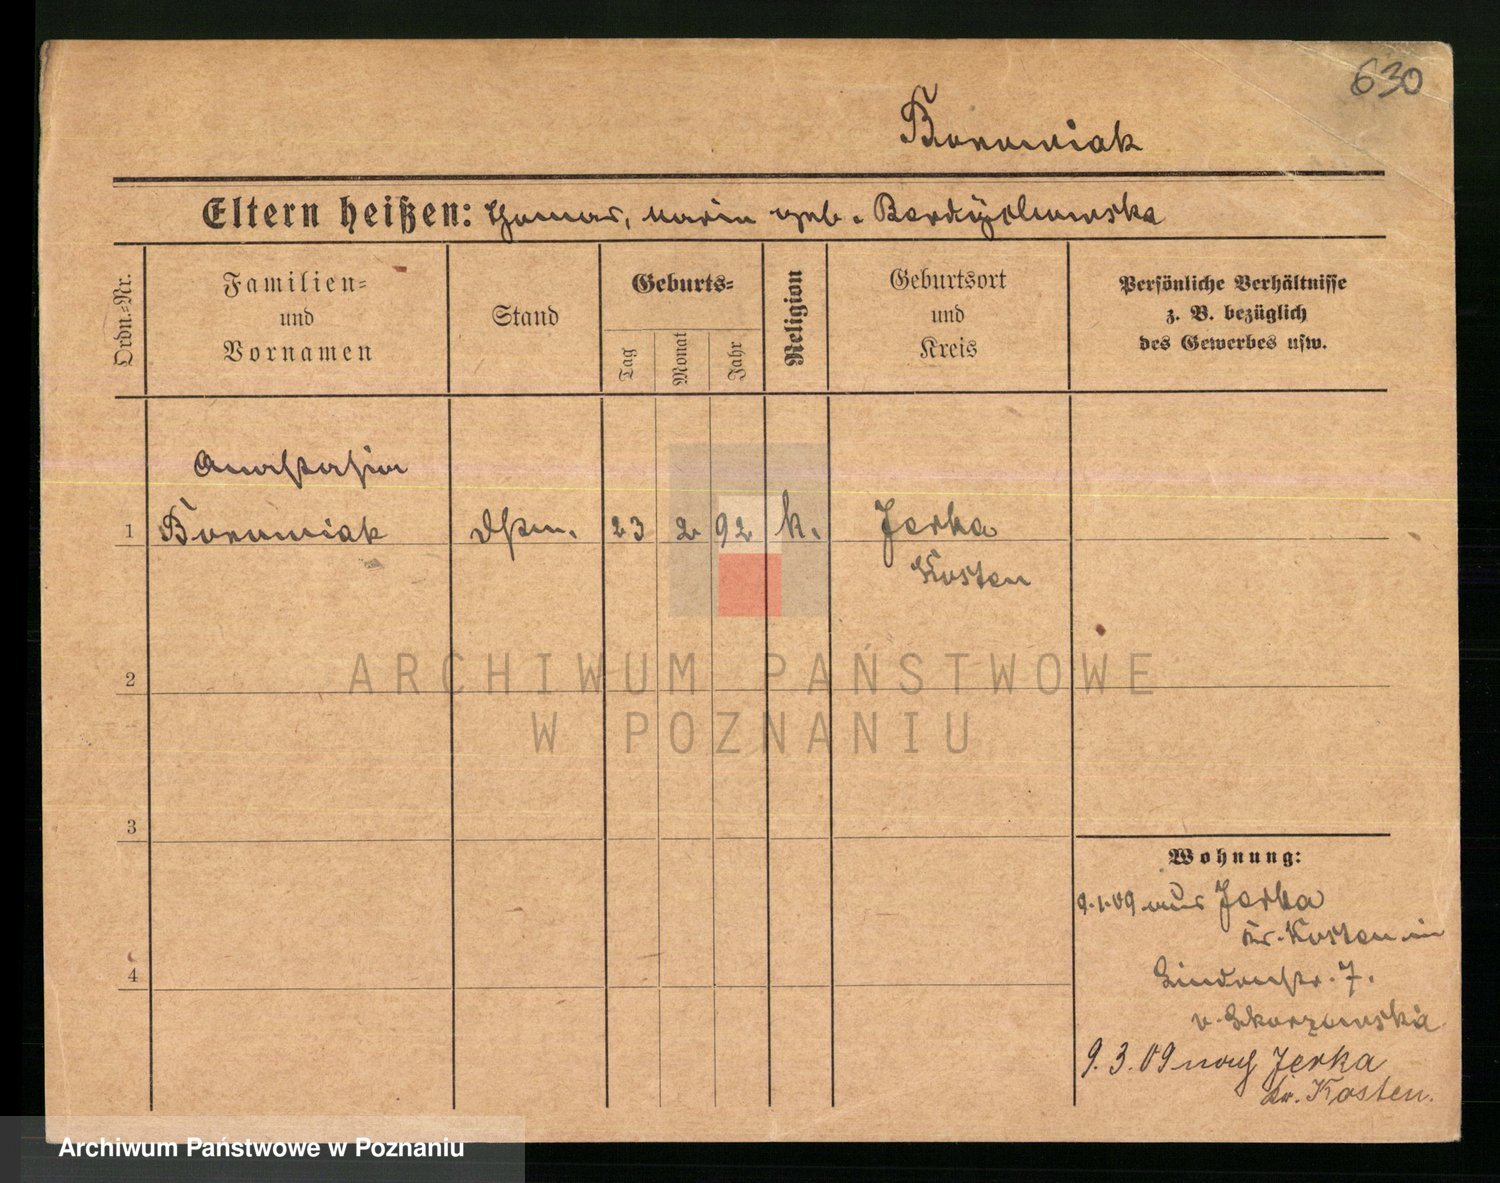 630
Borowiak
Eltern heißen: Thomas, Marie geb. Bardzislewska
Ordn.-Nr.
Familien-
und
Vornamen
Stand
Geburts-
Tag
Monat
Jahr
Religion
Geburtsort
und
Kreis
Persönliche Verhältnisse
z. B. bezüglich
des Gewerbes usw.
Anastasia
1 Borowiak Dstm. 23 2 92 k. Jerka
Kosten
2
3
4
Wohnung:
9.1.09 aus Jerka
Kr. Kosten in
Lindenstr. 7.
v. Skorzewska
9.3.09 nach Jerka
Kr. Kosten.
ARCHIWUM PAŃSTWOWE
W POZNANIU
Archiwum Państwowe w Poznaniu